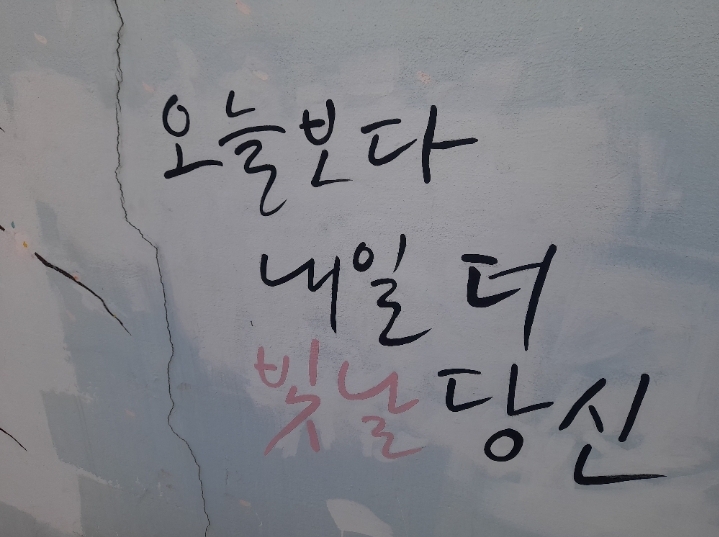 오늘보다
내일 더
빛날 당신